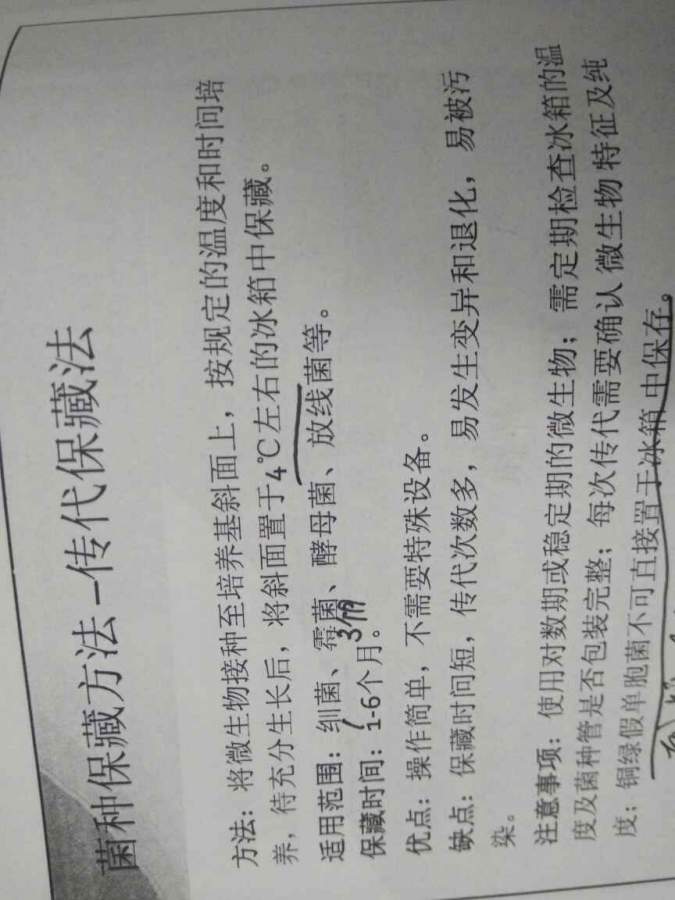 菌种保藏方法–传代保藏法
方法：将微生物接种至培养基斜面上，按规定的温度和时间培
养，待充分生长后，将斜面置于4℃左右的冰箱中保藏。
适用范围：细菌、霉菌、酵母菌、放线菌等。
保藏时间：1-6个月。
优点：操作简单，不需要特殊设备。
缺点：保藏时间短，传代次数多，易发生变异和退化，易被污
染。
注意事项：使用对数期或稳定期的微生物；需定期检查冰箱的温
度及菌种管是否包装完整；每次传代需要确认微生物特征及纯
度；铜绿假单胞菌不可直接置于冰箱中保存。